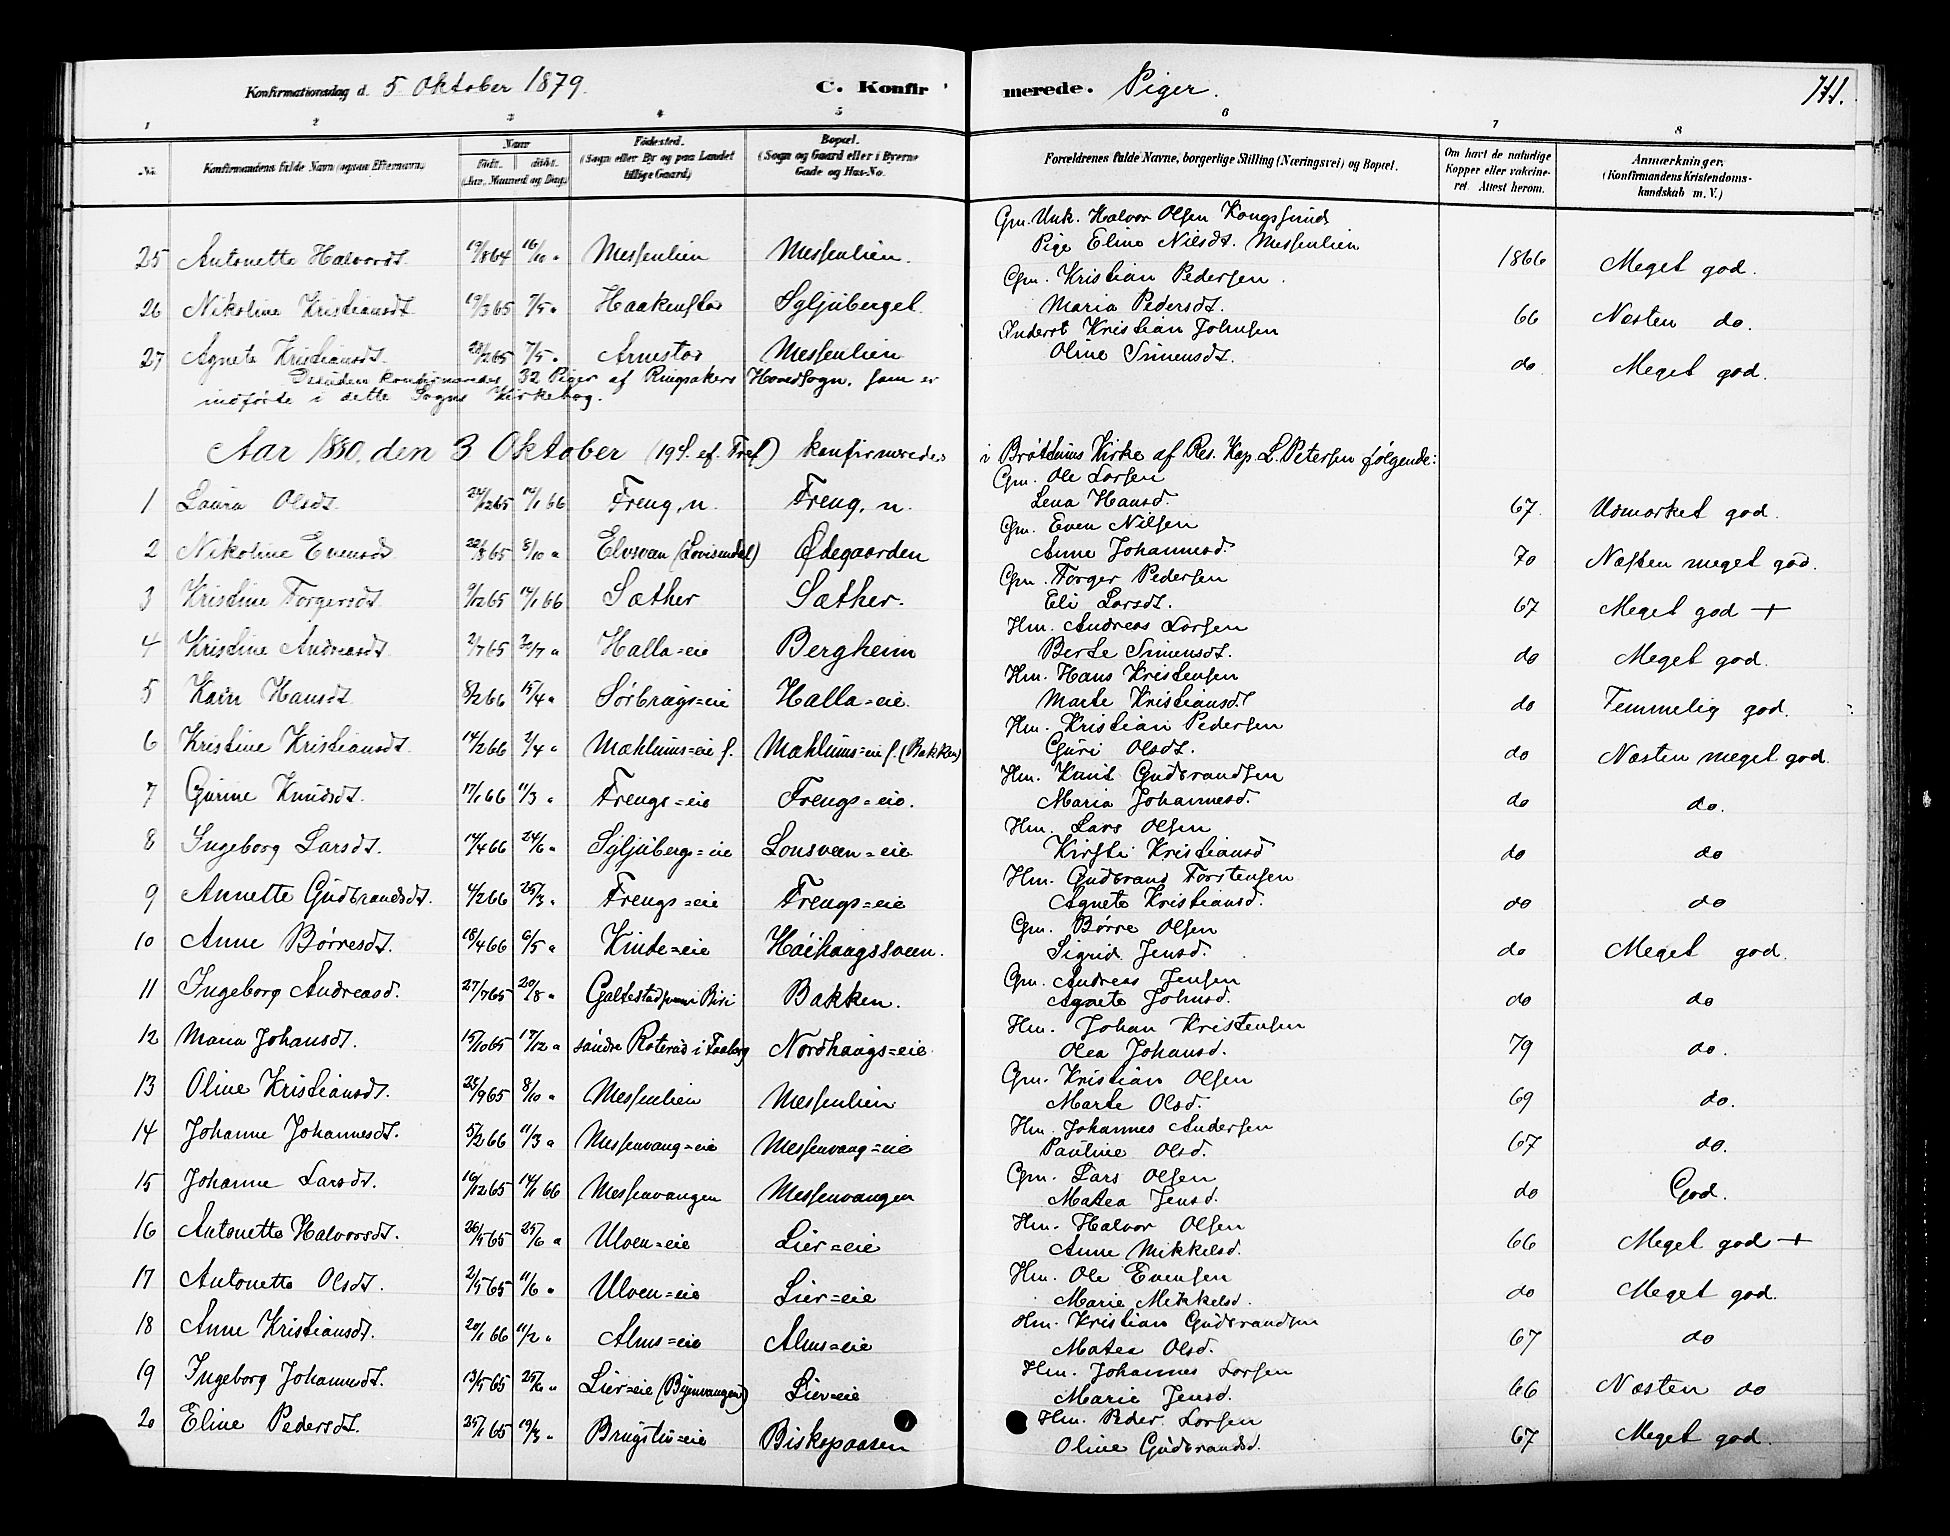 Konfirmationsdag d. 5 Oktober 1879. C. Konfirmerede. Piger. 171.
1 2 3 4 5 6 7 8
No. Konfirmandens fulde Navn (ogsaa Efternavn) Naar født. døbt. (Aar, Maaned og Dag) Fødested. (Sogn eller By og paa Landet tillige Gaard) Bopæl. (Sogn og Gaard eller i Byerne Gade og Hus-No. Forældrenes fulde Navne, borgerlige Stilling (Næringsvei) og Bopæl. Om havt de naturlige Kopper eller vakcineret. Attest herom. Anmærkninger. (Konfirmandens Kristendomskundskab m. V.)
Gm. Unk. Halvor Olsen Kongssund
25 Antonette Halvorsdt. 19/864 16/10 " Messenlien Messenlien. Pige Eline Nilsdt. Messenlien 1866 Meget god.
Gm. Kristian Pedersen.
26 Nikoline Kristiansdt. 19/365 7/5 " Haakenstad Syljuberget. Maria Pedersdt. 66 Næsten do.
Inderst Kristian Johnsen
27 Agnete Kristiansdt. 28/265 7/5 " Arnestad Messenlien Oline Simensdt. do Meget god.
Desuden konfirmeredes 32 Piger af Ringsakers Hovedsogn, som er
indførte i dette Sogns Kirkebog.
Aar 1880, den 3 Oktober (19 S. ef. Tref) konfirmeredes i Brøttums Kirke af Res. Kap. L. Petersen følgende:
Gm. Ole Larsen
1 Laura Olsdt. 22/1265 14/1 66 Freng, n. Freng, n. Lena Hansd. 67. Udmærket god.
Gm. Even Nilsen
2 Nikoline Evensdt. 22/865 8/10 " Elvsveen (Lovisendal) Ødegaarden Anne Johannesd. 70 Næsten meget god.
Gm. Torger Pedersen
3 Kristine Torgersdt. 9/1265 14/1 66 Sæther Sæther. Eli Larsdt. 67 Meget god +
Hm. Andreas Larsen
4 Kristine Andreasdt. 2/765 20/7 " Halla=eie Bergheim Berte Simensdt. do Meget god.
Hm. Hans Kristensen
5 Kari Hansdt. 8/266 15/4 " Sørbrugs=eie Halla=eie. Marte Kristiansdt do Temmelig god.
Hm. Kristian Pedersen
6 Kristine Kristiansdt. 14/266 2/4 " Mæhlums=eie s. Mæhlums=eie s. (Bakken) Guri Olsdt. do Næsten meget god.
Hm. Knut Gudbrandsen
7 Gurine Knudsdt. 17/166 11/3 " Frengs=eie Frengs=eie. Maria Johannesd. do do.
Hm. Lars Olsen
8 Ingeborg Larsdt. 14/466 24/6 " Syljubergs=eie Lonsveen=eie Kirsti Kristiansd do do
Hm. Gudbrand Torstensen
9 Annette Gudbrandsdt. 4/266 25/3 " Frengs=eie Frengs=eie Agnete Kristiansd. do do
Gm. Børre Olsen
10 Anne Børresdt. 18/466 6/5 " Kinde=eie Høihaugssveen. Sigrid Jensd. do Meget god.
Gm. Andreas Jensen
11 Ingeborg Andreasd. 27/765 20/8 " Galtestad i Biri Bakken. Agnete Johnsd. do do
Hm. Johan Kristensen
12 Maria Johansdt. 15/1065 17/12 " søndre Roterud i Faaberg Nordhaugs=eie Olea Johansd. 79 do.
Gm. Kristian Olsen
13 Oline Kristiansdt. 25/965 8/10 " Messenlien Messenlien Marte Olsd. 69 do.
Hm. Johannes Andersen
14 Johanne Johannesdt. 5/266 11/3 " Messenvang=eie Messenvang=eie Pauline Olsd. 67 do.
Gm. Lars Olsen
15 Johanne Larsdt. 16/1265 14/1 66 Messenvangen Messenvangen Matea Jensd. do God.
Hm. Halvor Olsen
16 Antonette Halvorsdt. 26/565 25/6 " Ulven=eie Lier=eie Anne Mikkelsd. 66 Meget god +
Hm. Ole Evensen
17 Antonette Olsdt. 2/565 11/6 " Ulven=eie Lier=eie Marie Mikkelsd. do Meget god.
Hm. Kristian Gudbrandsen
18 Anne Kristiansdt. 20/1 66 11/2 " Alms=eie Alms=eie Matea Olsd. 67 do
Hm. Johannes Larsen
19 Ingeborg Johannesdt. 13/565 25/6 " Lier=eie Lier=eie Marie Jensd. 66 Næsten do
Hm. Peder Larsen
20 Eline Pedersdt. 25/165 19/3 " Brugstu=eie Biskopaasen Oline Gudbrandsd. 67 Meget god.